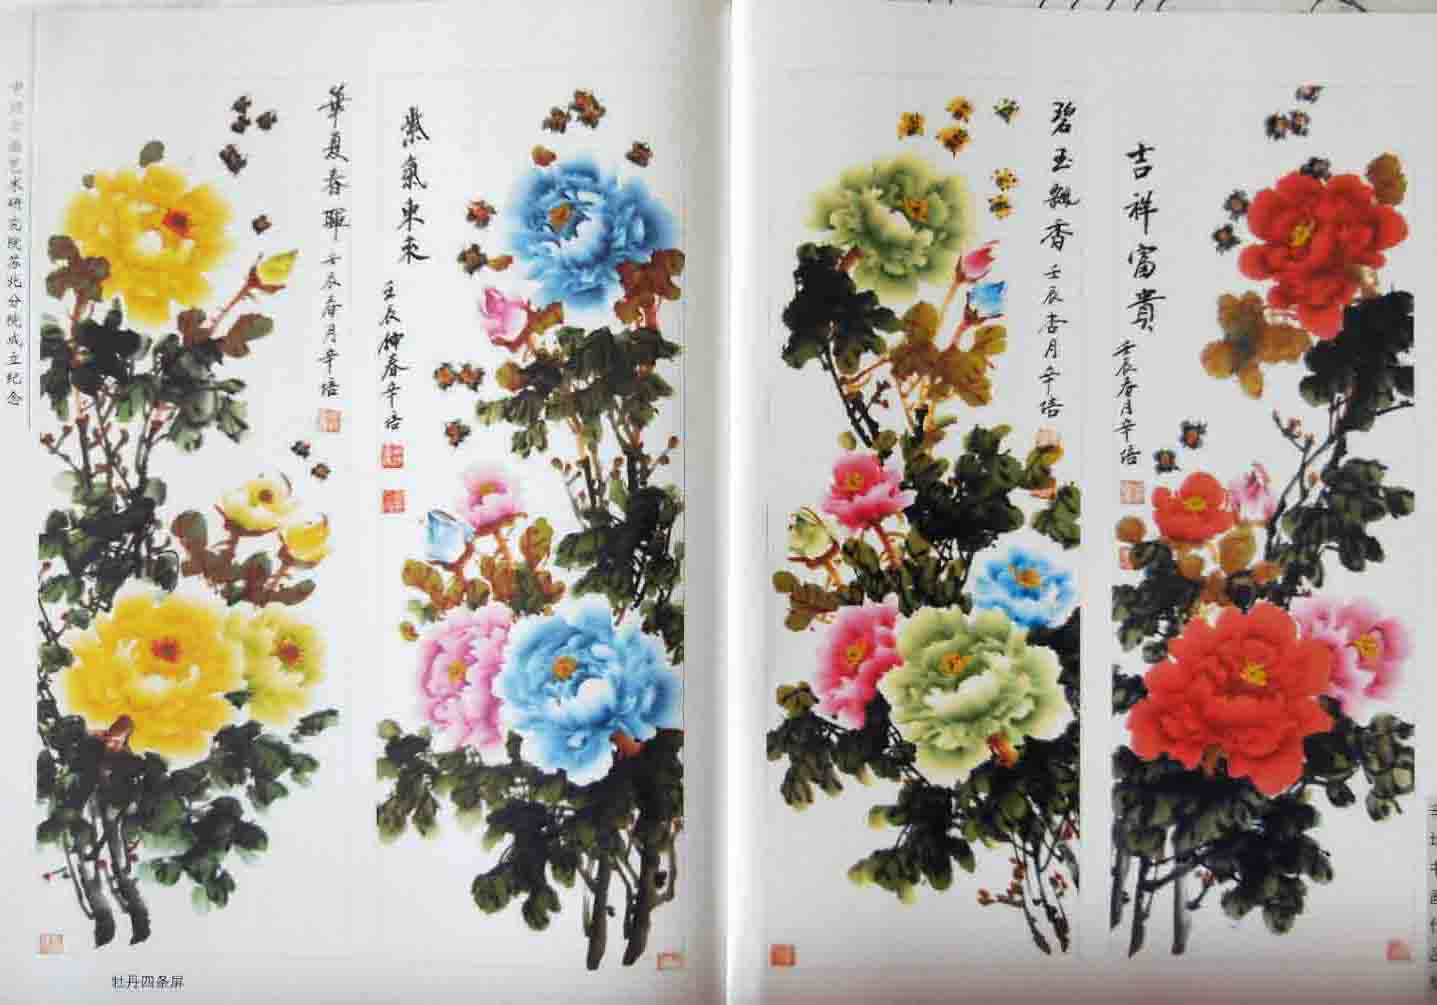 吉祥富貴
壬辰春月辛培
碧玉飘香
壬辰杏月辛培
紫氣東来
壬辰仲春辛培
華夏春暉
壬辰春月辛培
艺术研究院苏北分院成立纪念
牡丹四条屏